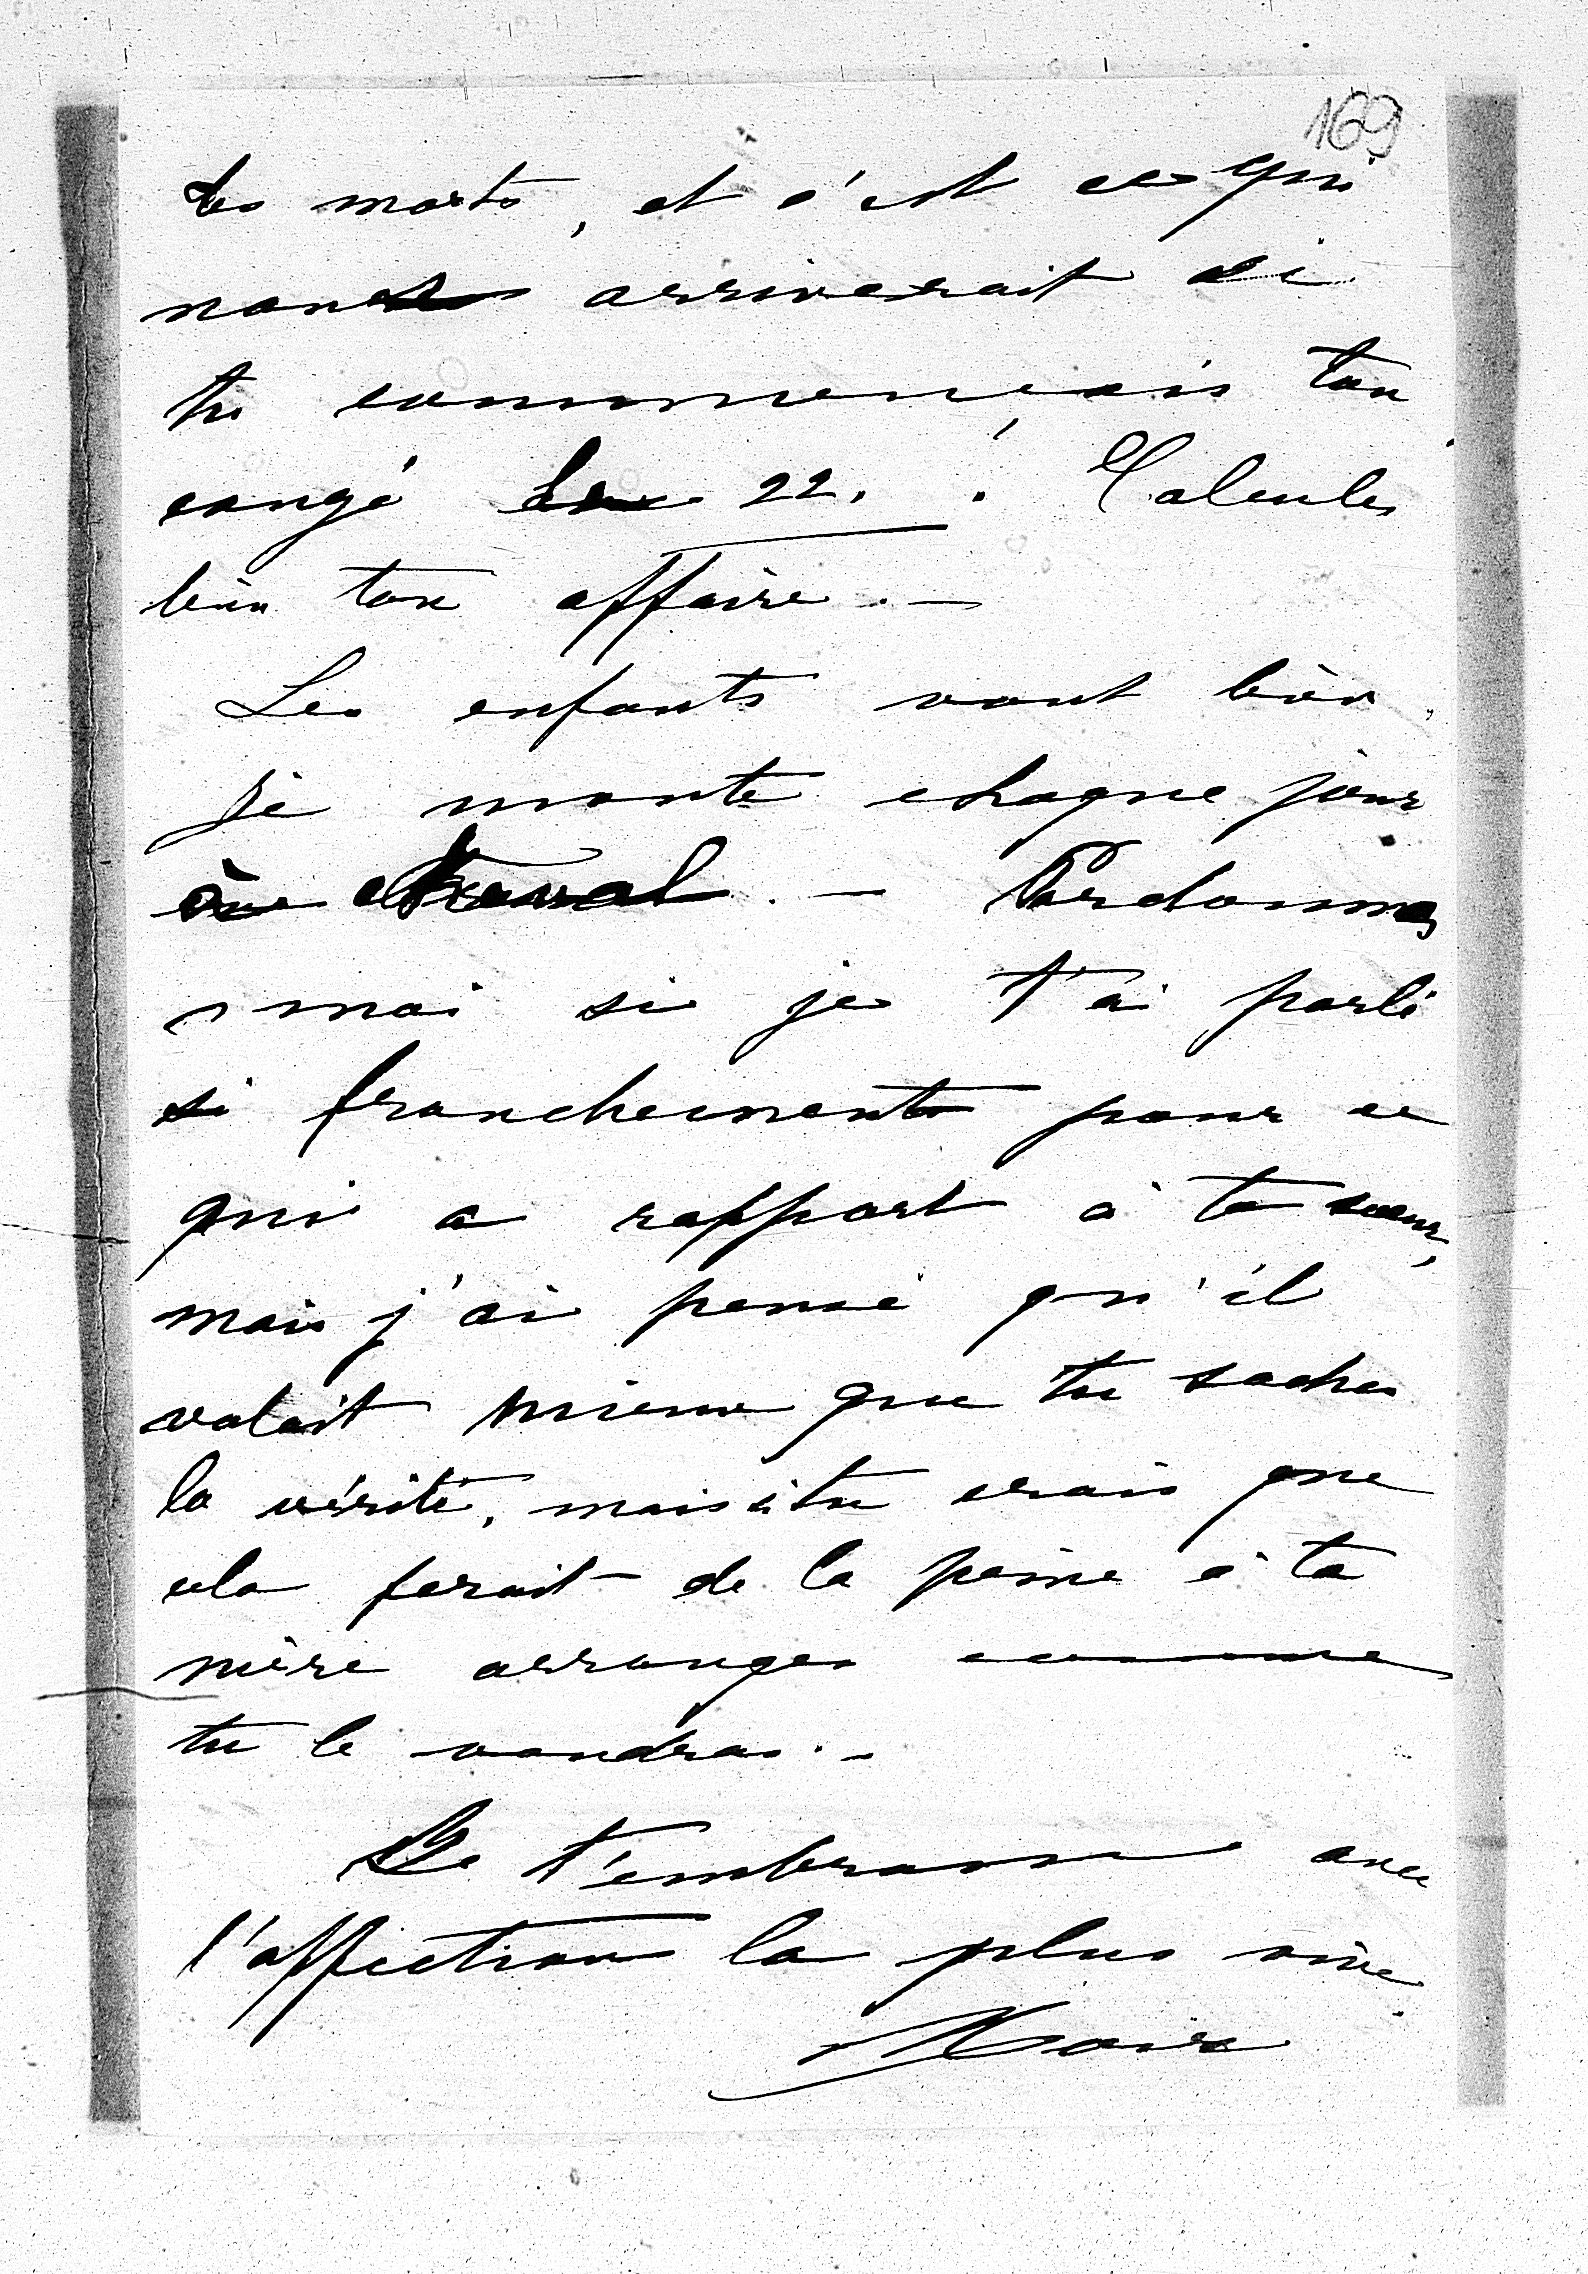 169
les morts, et c'est ce qui
nous arriverait si
tu commençais ton
congé le 22. . Calcules
bien ton affaire. —
Les enfants vont bien.
je monte chaque jour
à cheval. — Pardonnes
moi si je t'ai parlé
si franchement pour ce
qui a rapport à ta sœur,
mais j'ai pensé qu'il
valait mieux que tu saches
la vérité, mais si tu crais que
cela ferait de la peine à ta
mère arranges comme
tu le voudras. —
Je t'embrasse avec
l'affection la plus vive.